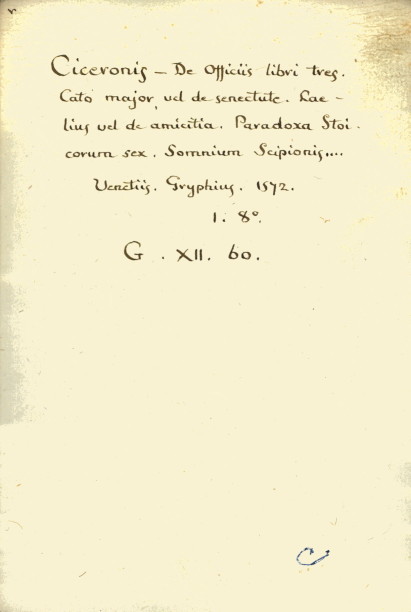 Ciceronis — De Officiis libri tres.
Cato major, vel de senectute. Lae-
lius vel de amicitia. Paradoxa Stoi.
corum sex. Somnium Scipionis....
Venetiis. Gryphius. 1572.
1. 8º.
G. XII. 60.